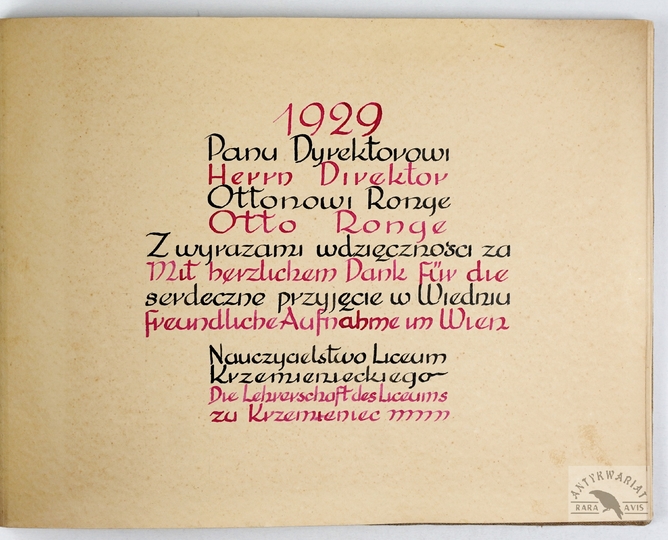 1929
Panu Dyrektorowi
Herrn Direktor
Ottonowi Ronge
Otto Ronge
Z wyrazami wdzięczności za
Mit herzlichem Dank für die
serdeczne przyjęcie w Wiedniu
freundliche Aufnahme im Wien
Nauczycielstwo Liceum
Krzemienieckiego
Die Lehrerschaft des Liceums
zu Krzemieniec
ANTYKWARIAT
RARA AVIS